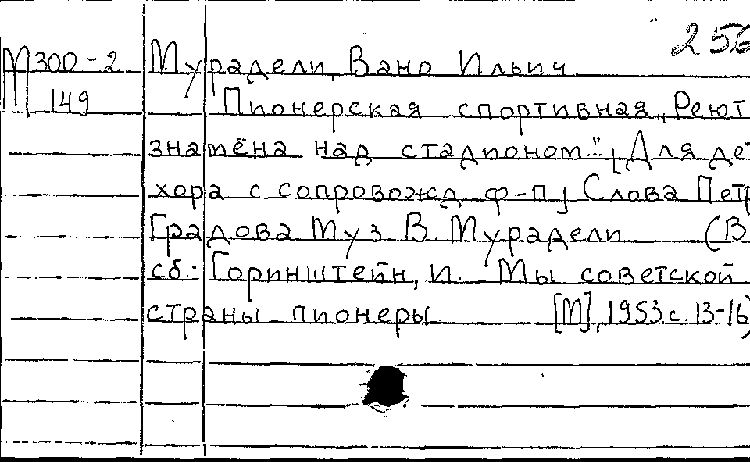 256
М300-2 Мурадели, Вано Ильич
149 Пионерская спортивная „Реют
знамёна над стадионом". [Для дет
хора с сопровожд. ф-п] Слова Петр
Градова Муз. В. Мурадели (В
сб.: Горинштейн, И. Мы советской
страны пионеры [М], 1953 с. 13-16)